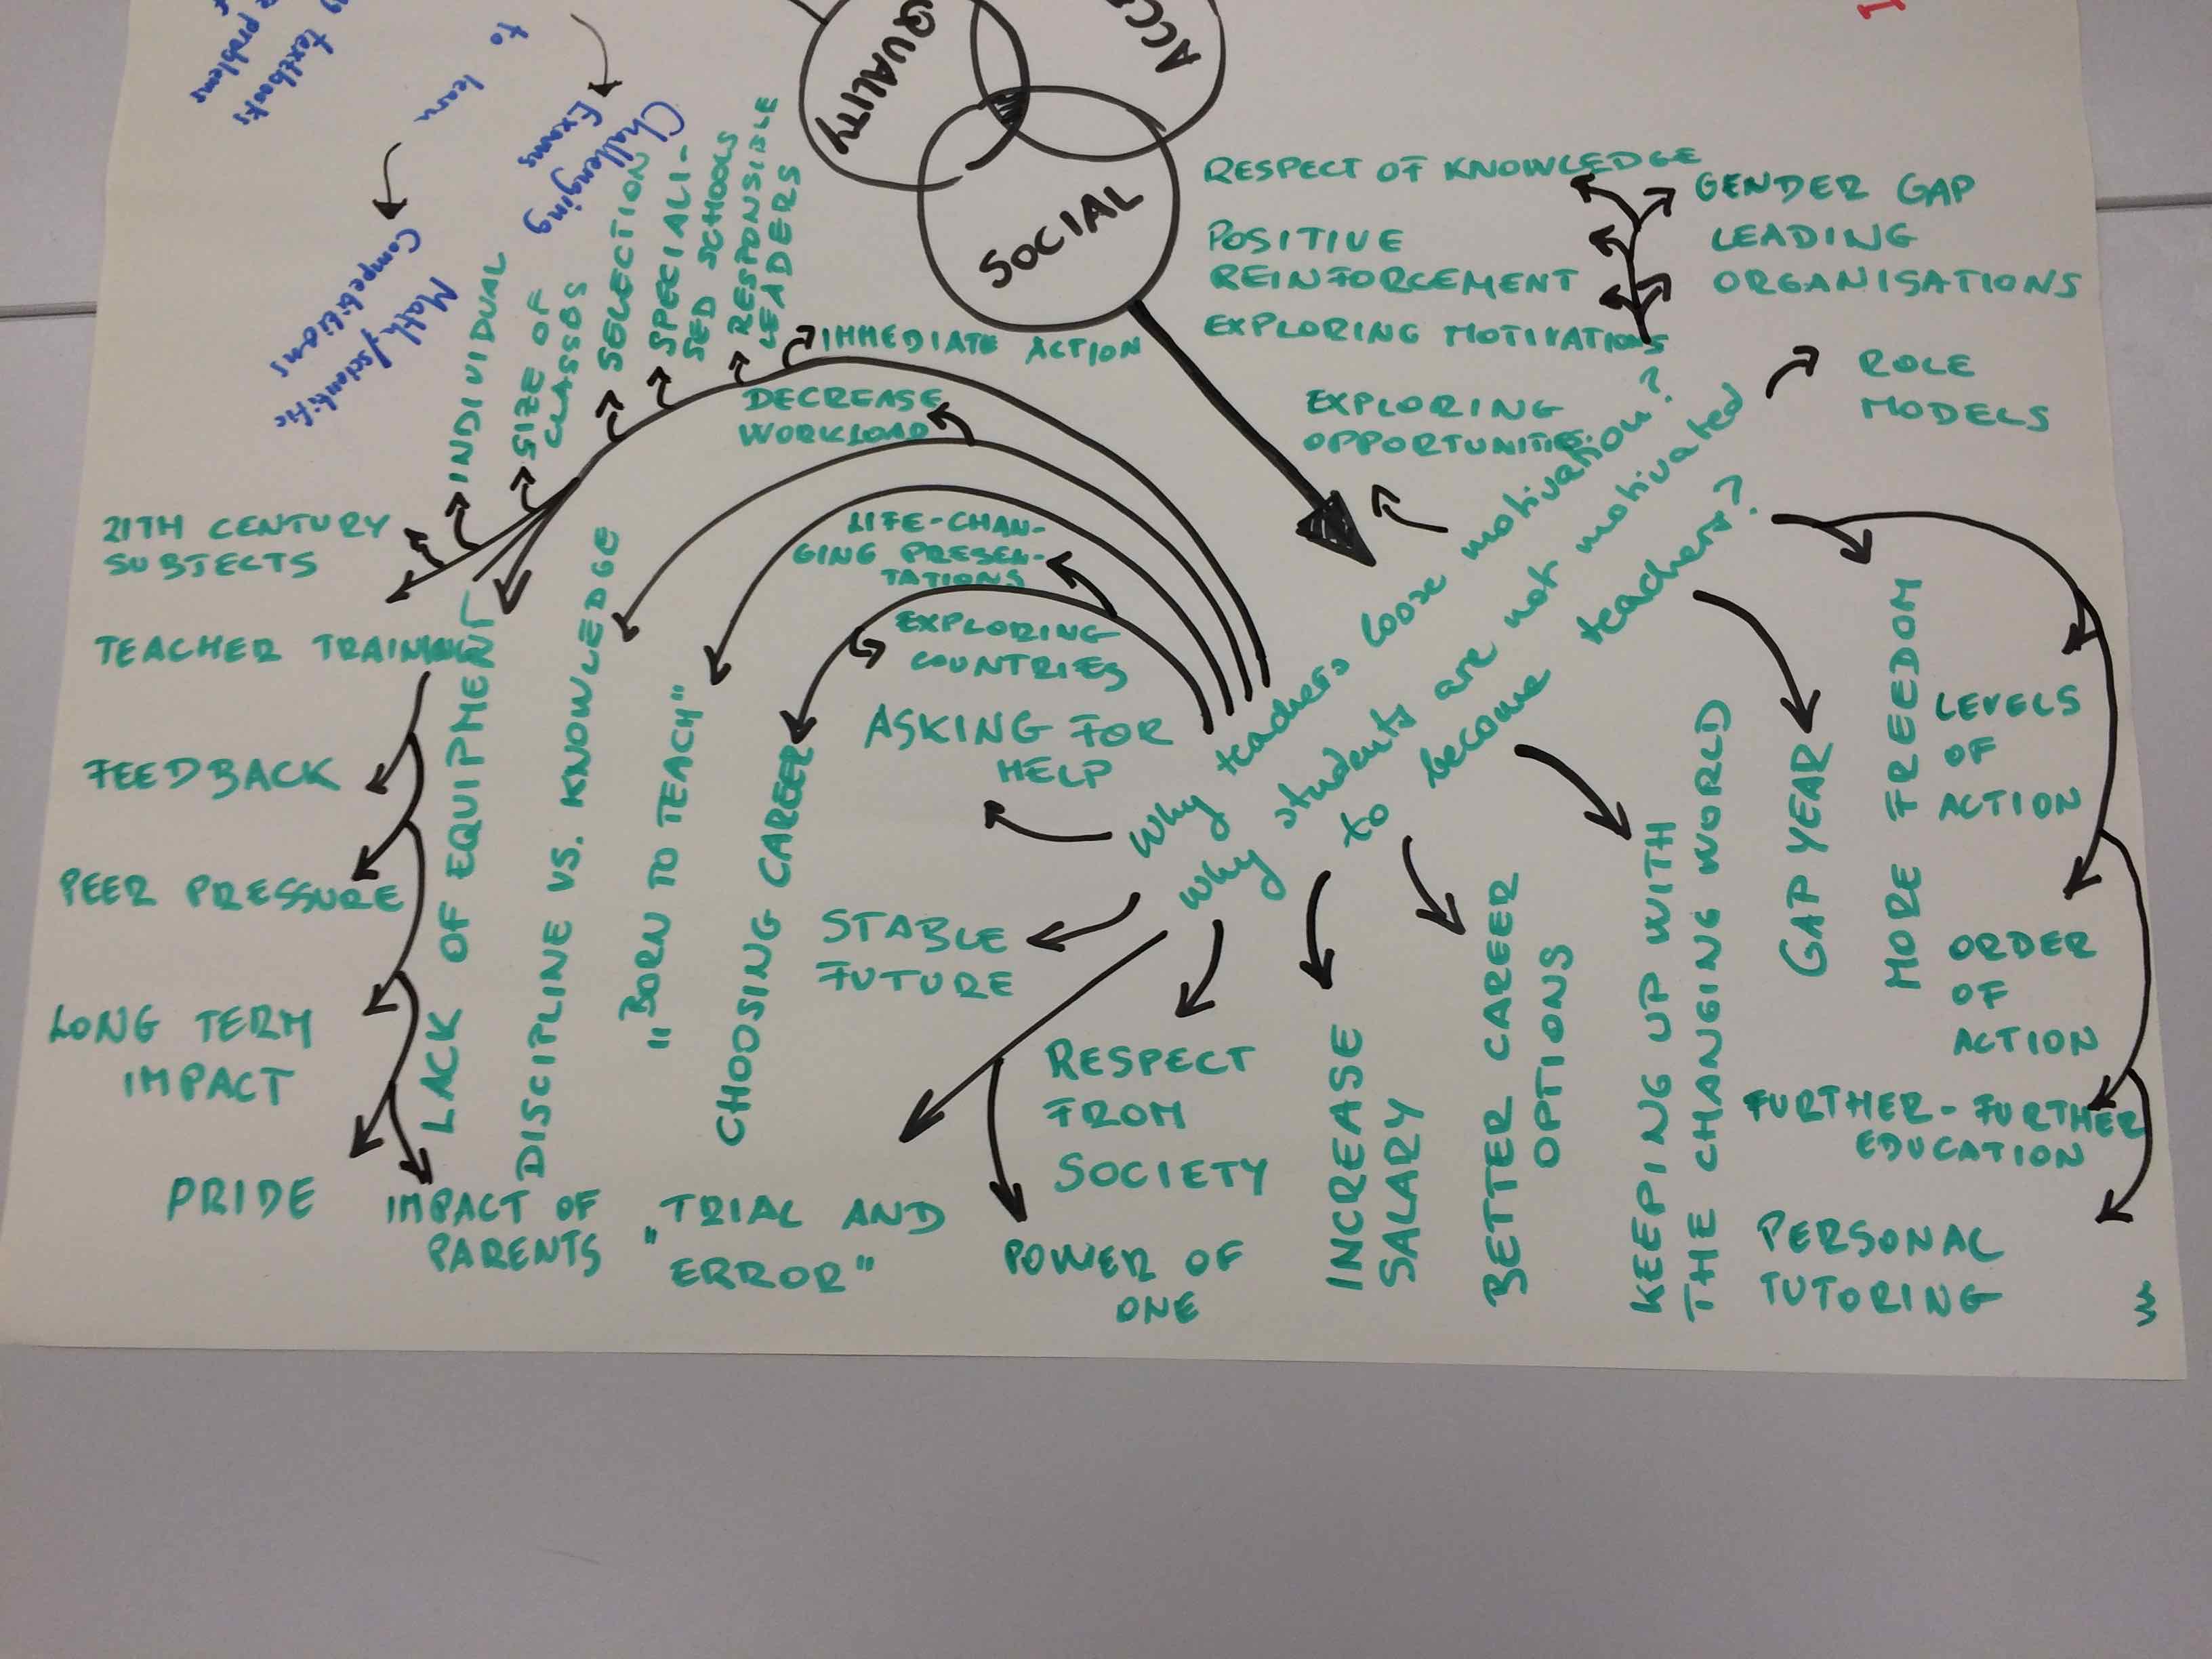 textbooks
problems
to learn
Challenging
Exams
Math/scientific
Competitions
QUALITY
ACC
SOCIAL
RESPECT OF KNOWLEDGE
GENDER GAP
POSITIVE
REINFORCEMENT
LEADING
ORGANISATIONS
EXPLORING MOTIVATIONS
EXPLORING
OPPORTUNITIES
ROLE
MODELS
Why teachers loose motivation?
Why students are not motivated
to become teachers?
INDIVIDUAL
SIZE OF
CLASSES
SELECTION
SPECIALI-
SED SCHOOLS
RESPONSIBLE
LEADERS
IMMEDIATE ACTION
DECREASE
WORKLOAD
LIFE-CHAN-
GING PRESEN-
TATIONS
EXPLORING
COUNTRIES
ASKING FOR
HELP
21TH CENTURY
SUBJECTS
TEACHER TRAINING
FEEDBACK
PEER PRESSURE
LONG TERM
IMPACT
PRIDE
IMPACT OF
PARENTS
LACK OF EQUIPMENT
DISCIPLINE VS. KNOWLEDGE
"BORN TO TEACH"
CHOOSING CAREER
STABLE
FUTURE
"TRIAL AND
ERROR"
POWER OF
ONE
RESPECT
FROM
SOCIETY
INCREASE
SALARY
BETTER CAREER
OPTIONS
KEEPING UP WITH
THE CHANGING WORLD
GAP YEAR
MORE FREEDOM
LEVELS
OF
ACTION
ORDER
OF
ACTION
FURTHER-FURTHER
EDUCATION
PERSONAL
TUTORING